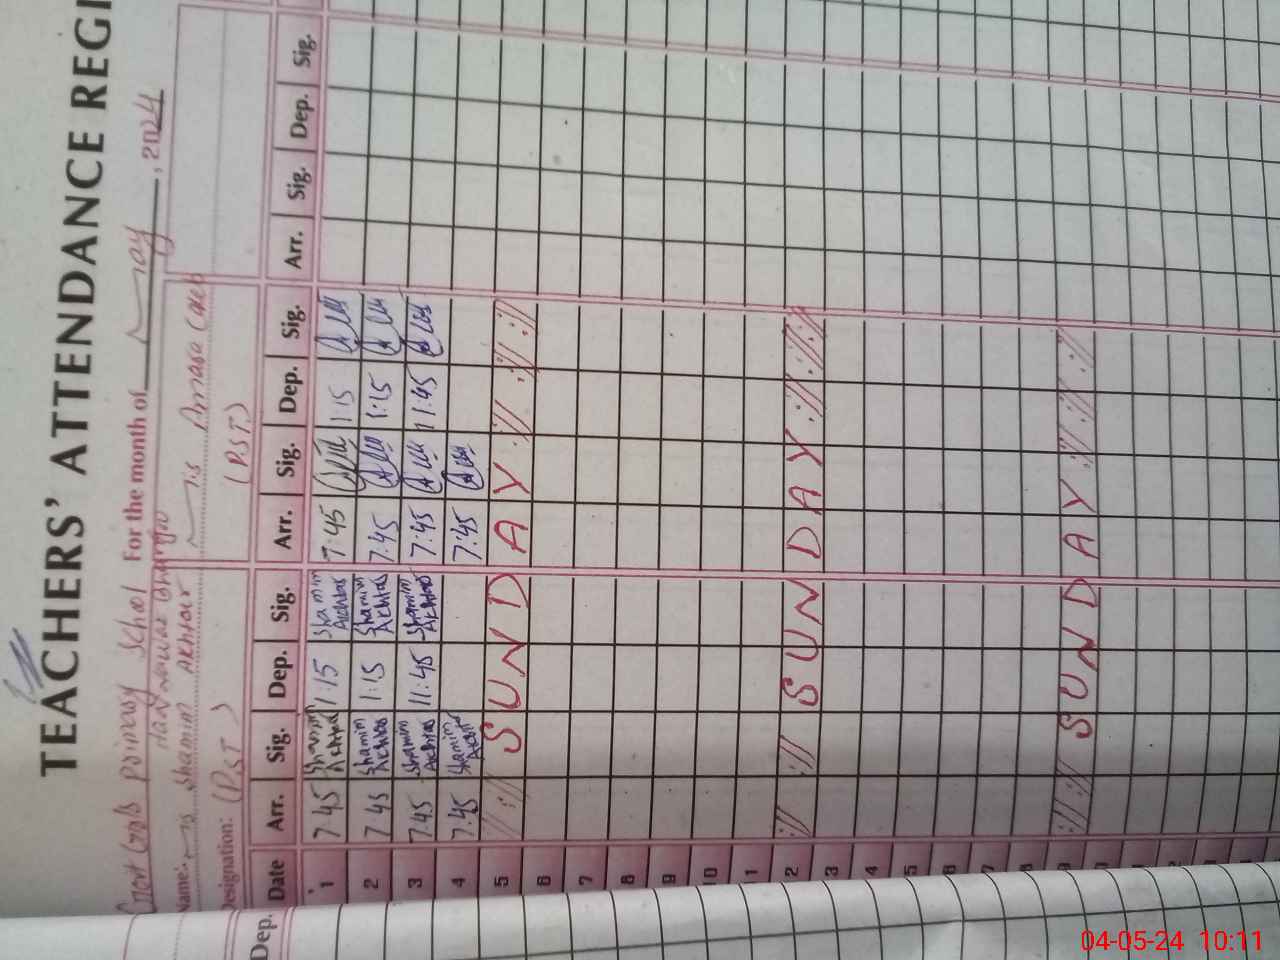 TEACHERS' ATTENDANCE REGI
Govt Girls primary School For the month of May, 2024
Name: Shamim Akhtar
Designation: (PST) (PST)
Dep. Date Arr. Sig. Dep. Sig. Arr. Sig. Dep. Sig. Arr. Sig. Dep. Sig.
1 7:45 Shamim Akhtar 1:15 Shamim Akhtar 7:45 1:15
2 7:45 Shamim Akhtar 1:15 Shamim Akhtar 7:45 1:15
3 7:45 Shamim Akhtar 11:45 Shamim Akhtar 7:45 11:45
4 7:45 Shamim Akhtar 7:45
5 SUNDAY
6
7
8
9
10
11
2 SUNDAY
3
4
5
6
7
8
9 SUNDAY
04-05-24 10:11